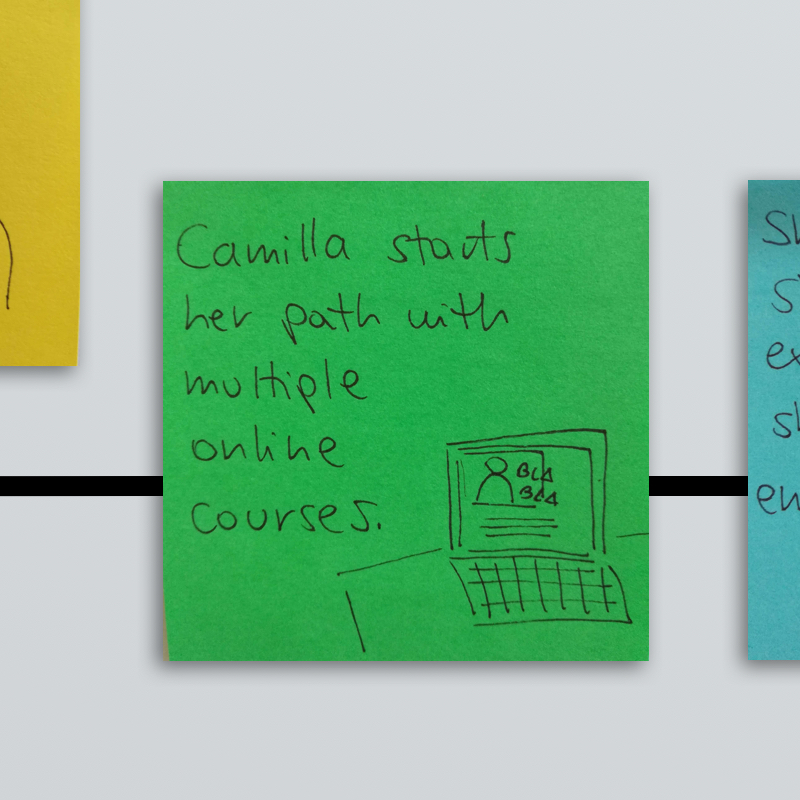 Camilla starts
her path with
multiple
online
courses.
BLA
BLA